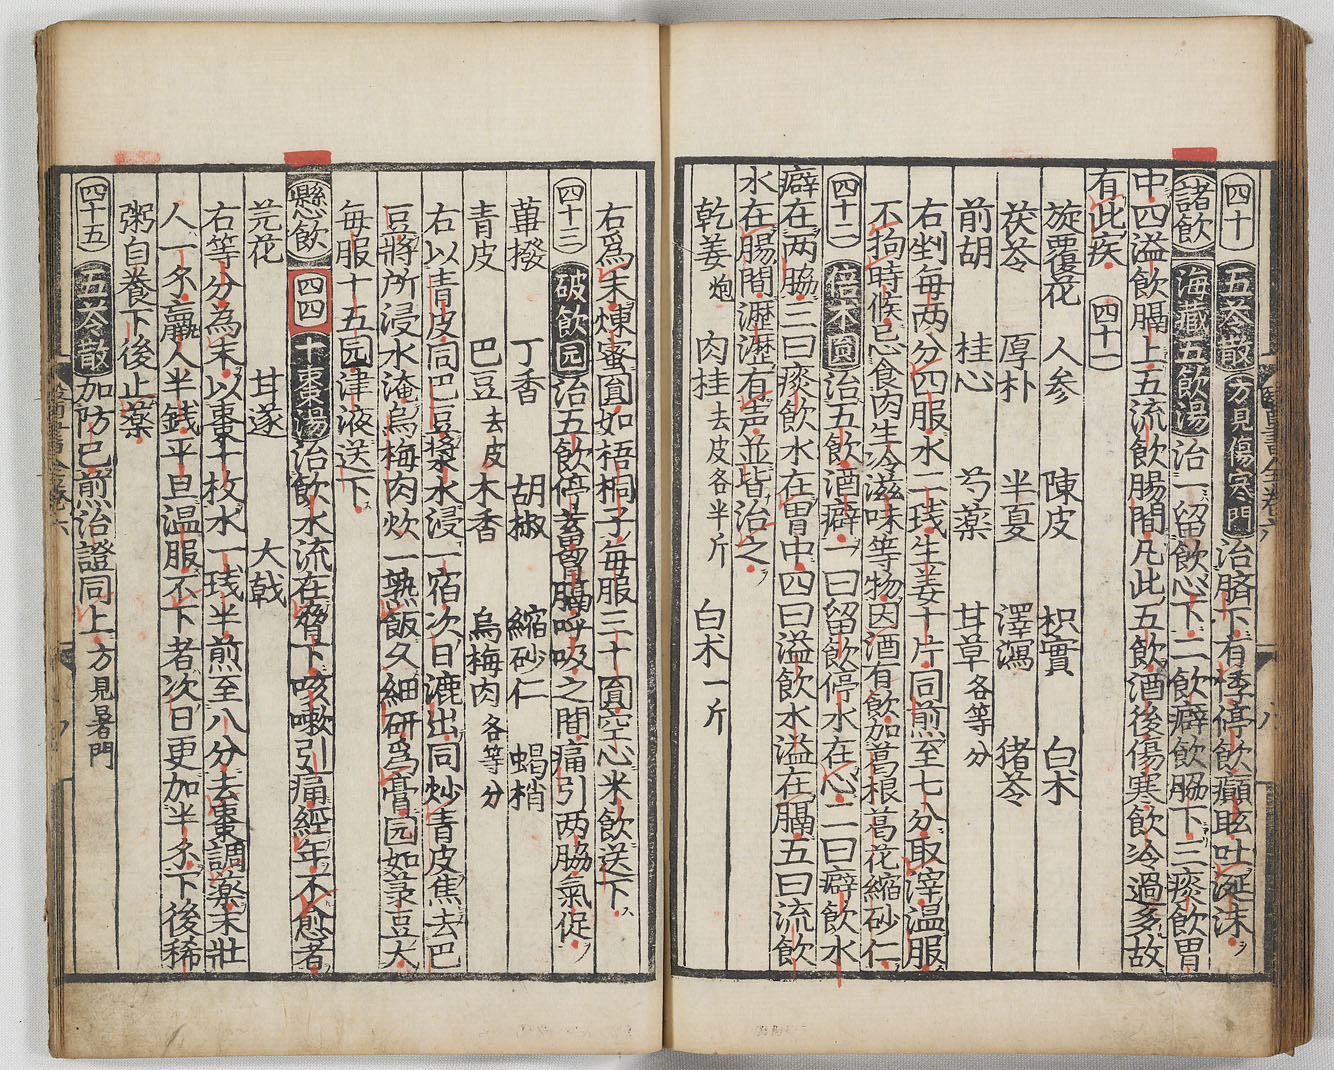 四十 五苓散 方見傷寒門 治臍下有悸停飲癲眩吐涎沫
諸飲 海藏五飲湯 治一留飲心下二飲癖飲脇下三痰飲胃
中四溢飲膈上五流飲腸間凡此五飲酒後傷寒飲冷過多故
有此疾 四十一
旋覆花 人参 陳皮 枳實 白朮
茯苓 厚朴 半夏 澤瀉 猪苓
前胡 桂心 芍薬 甘草各等分
右剉每两分四服水二琖生姜十片同煎至七分取滓温服
不拘時候忌食肉生冷滋味等物因酒有飲加葛根葛花縮砂仁
四十二 倍朮圓 治五飲酒癖一曰留飲停水在心二曰癖飲水
癖在两脇三曰痰飲水在胃中四曰溢飲水溢在膈五曰流飲
水在腸間瀝瀝有声並皆治之
乾姜炮 肉桂去皮各半斤 白朮一斤
右爲末煉蜜圓如梧桐子每服三十圓空心米飲送下
四十三 破飲圓 治五飲停蓄膈呼吸之間痛引两脇氣促
蓽撥 丁香 胡椒 縮砂仁 蝎梢
青皮 巴豆去皮 木香 烏梅肉各等分
右以青皮同巴豆漿水浸一宿次日漉出同炒青皮焦去巴
豆將所浸水淹烏梅肉炊一熟飯久細研爲膏圓如菉豆大
每服十五圓津液送下
懸飲 四四 十棗湯 治飲水流在脅下咳嗽引痛經年不愈者
芫花 甘遂 大戟
右等分為末以棗十枚水一琖半煎至八分去棗調薬末壯
人一錢羸人半錢平旦温服不下者次日更加半錢下後稀
粥自養下後止薬
四十五 五苓散 加防已煎治證同上方見暑門